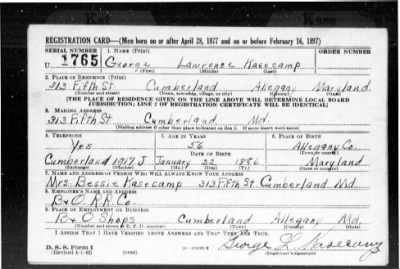 REGISTRATION CARD—(Men born on or after April 28, 1877 and on or before February 16, 1897)
SERIAL NUMBER
1. NAME (Print)
ORDER NUMBER
U 1765
George Lawrence Kasecamp
(First) (Middle) (Last)
2. PLACE OF RESIDENCE (Print)
313 Fifth St Cumberland Allegany Maryland
(Number and street) (Town, township, village, or city) (County) (State)
[THE PLACE OF RESIDENCE GIVEN ON THE LINE ABOVE WILL DETERMINE LOCAL BOARD
JURISDICTION; LINE 2 OF REGISTRATION CERTIFICATE WILL BE IDENTICAL]
3. MAILING ADDRESS
313 Fifth St Cumberland Md.
[Mailing address if other than place indicated on line 2. If same insert word same]
4. TELEPHONE
5. AGE IN YEARS
6. PLACE OF BIRTH
Yes
56
Allegany Co.
DATE OF BIRTH
Cumberland 1917 J January 22 1886 Maryland
(Exchange) (Number) (Mo.) (Day) (Yr.) (State or country)
7. NAME AND ADDRESS OF PERSON WHO WILL ALWAYS KNOW YOUR ADDRESS
Mrs. Bessie Kasecamp 313 Fifth St. Cumberland Md.
8. EMPLOYER'S NAME AND ADDRESS
B & O. R.R. Co.
9. PLACE OF EMPLOYMENT OR BUSINESS
B & O Shops Cumberland Allegany Md.
(Number and street or R. F. D. number) (Town) (County) (State)
I AFFIRM THAT I HAVE VERIFIED ABOVE ANSWERS AND THAT THEY ARE TRUE.
D. S. S. Form 1
(Revised 4-1-42) (over)
George L. Kasecamp
(Registrant's signature)